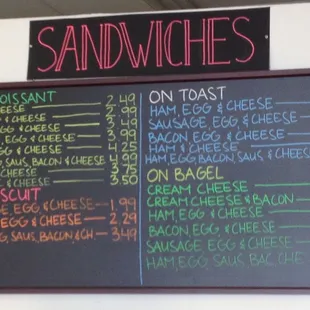 SANDWICHES
OISSANT 2.49
EESE
& CHEESE
G & CHEESE
, EGG & CHEESE 3.99
G & CHEESE 4.25
, SAUS, BACON & CHEESE 4.99
CHEESE 3.75
& CHEESE 3.50
SCUIT
E, EGG, & CHEESE 1.99
EGG & CHEESE 2.29
G, SAUS, BACON, & CH. 3.49
ON TOAST
HAM, EGG & CHEESE
SAUSAGE EGG & CHEESE
BACON EGG & CHEESE
HAM & CHEESE
HAM, EGG, BACON, SAUS, & CHEES
ON BAGEL
CREAM CHEESE
CREAM CHEESE & BACON
HAM, EGG & CHEESE
BACON EGG & CHEESE
SAUSAGE EGG & CHEESE
HAM, EGG, SAUS, BAC CHE